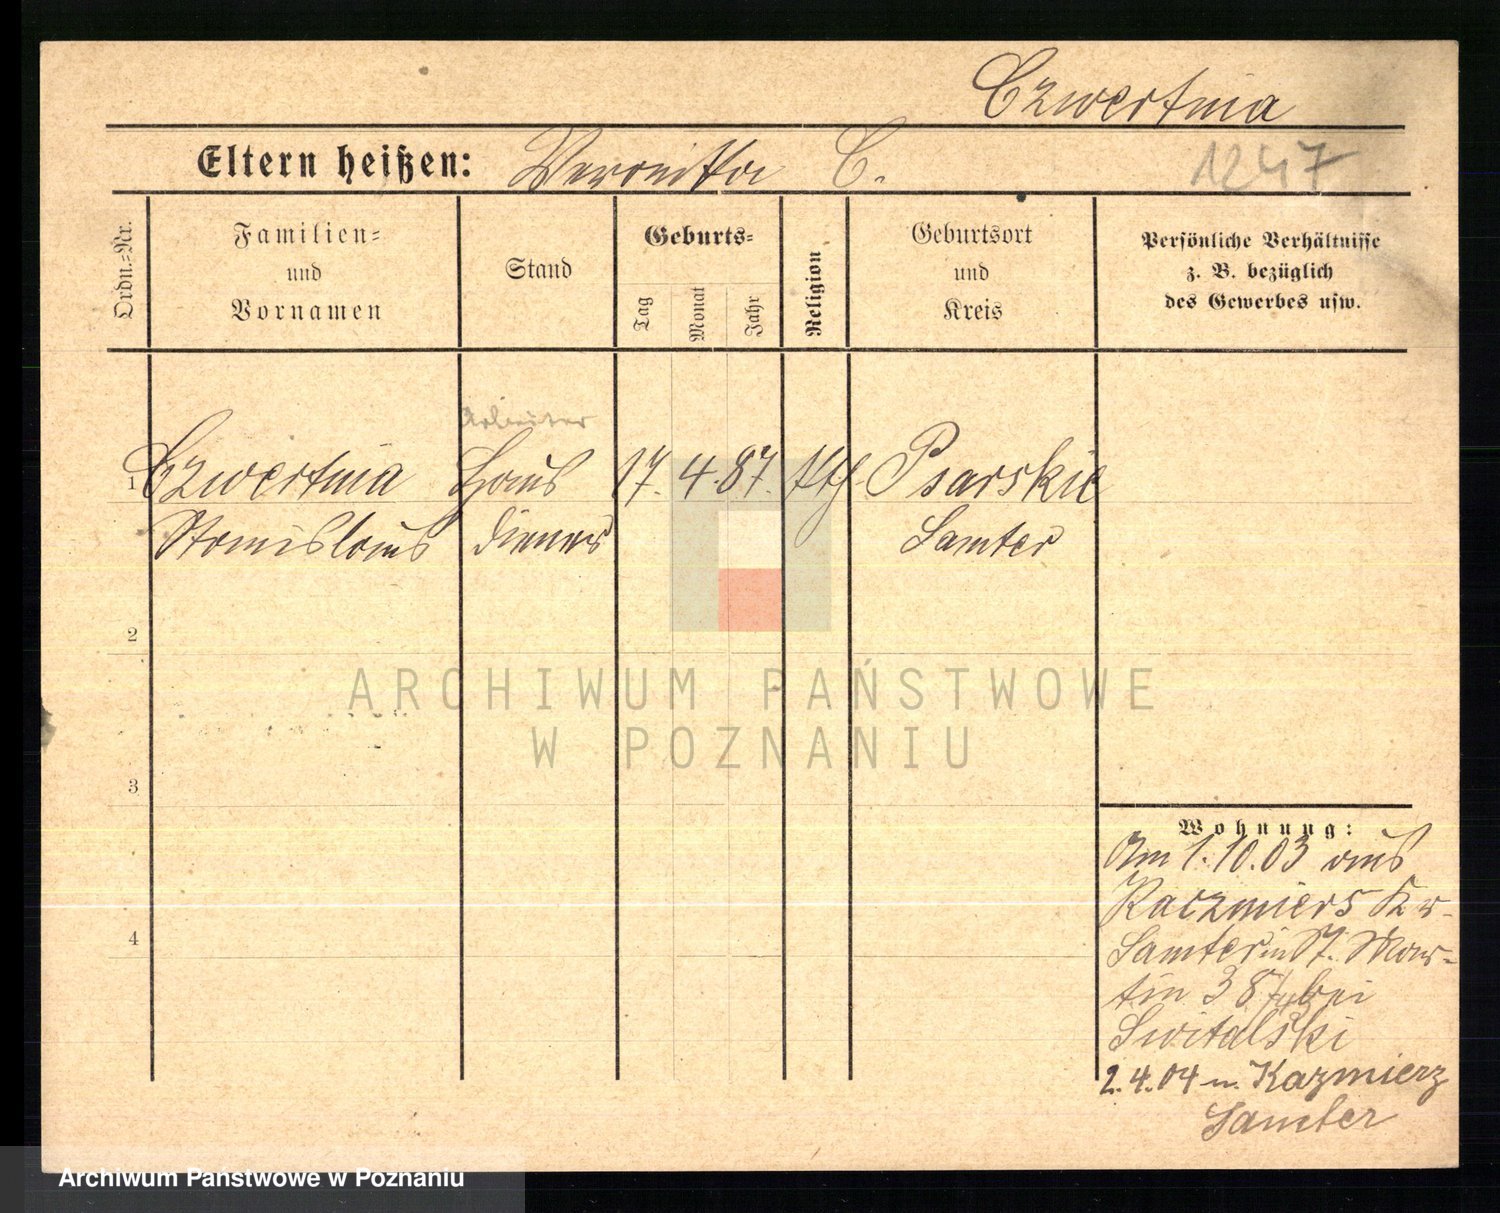 Czwertnia
Eltern heißen: Veronika C.
1247
Ordn.-Nr.
Familien-
und
Vornamen
Stand
Geburts-
Tag
Monat
Jahr
Religion
Geburtsort
und
Kreis
Persönliche Verhältnisse
z. B. bezüglich
des Gewerbes usw.
Arbeiter
1 Czwertnia Haus 17. 4. 87. kth. Psarskie
Stanislaus diener Samter
2
3
4
ARCHIWUM PAŃSTWOWE
W POZNANIU
Wohnung:
Am 1.10.03 aus
Kaczmierz Kr.
Samter in St. Mar-
tin 38 bei
Switalski
2.4.04 n. Kazmierz
Samter
Archiwum Państwowe w Poznaniu